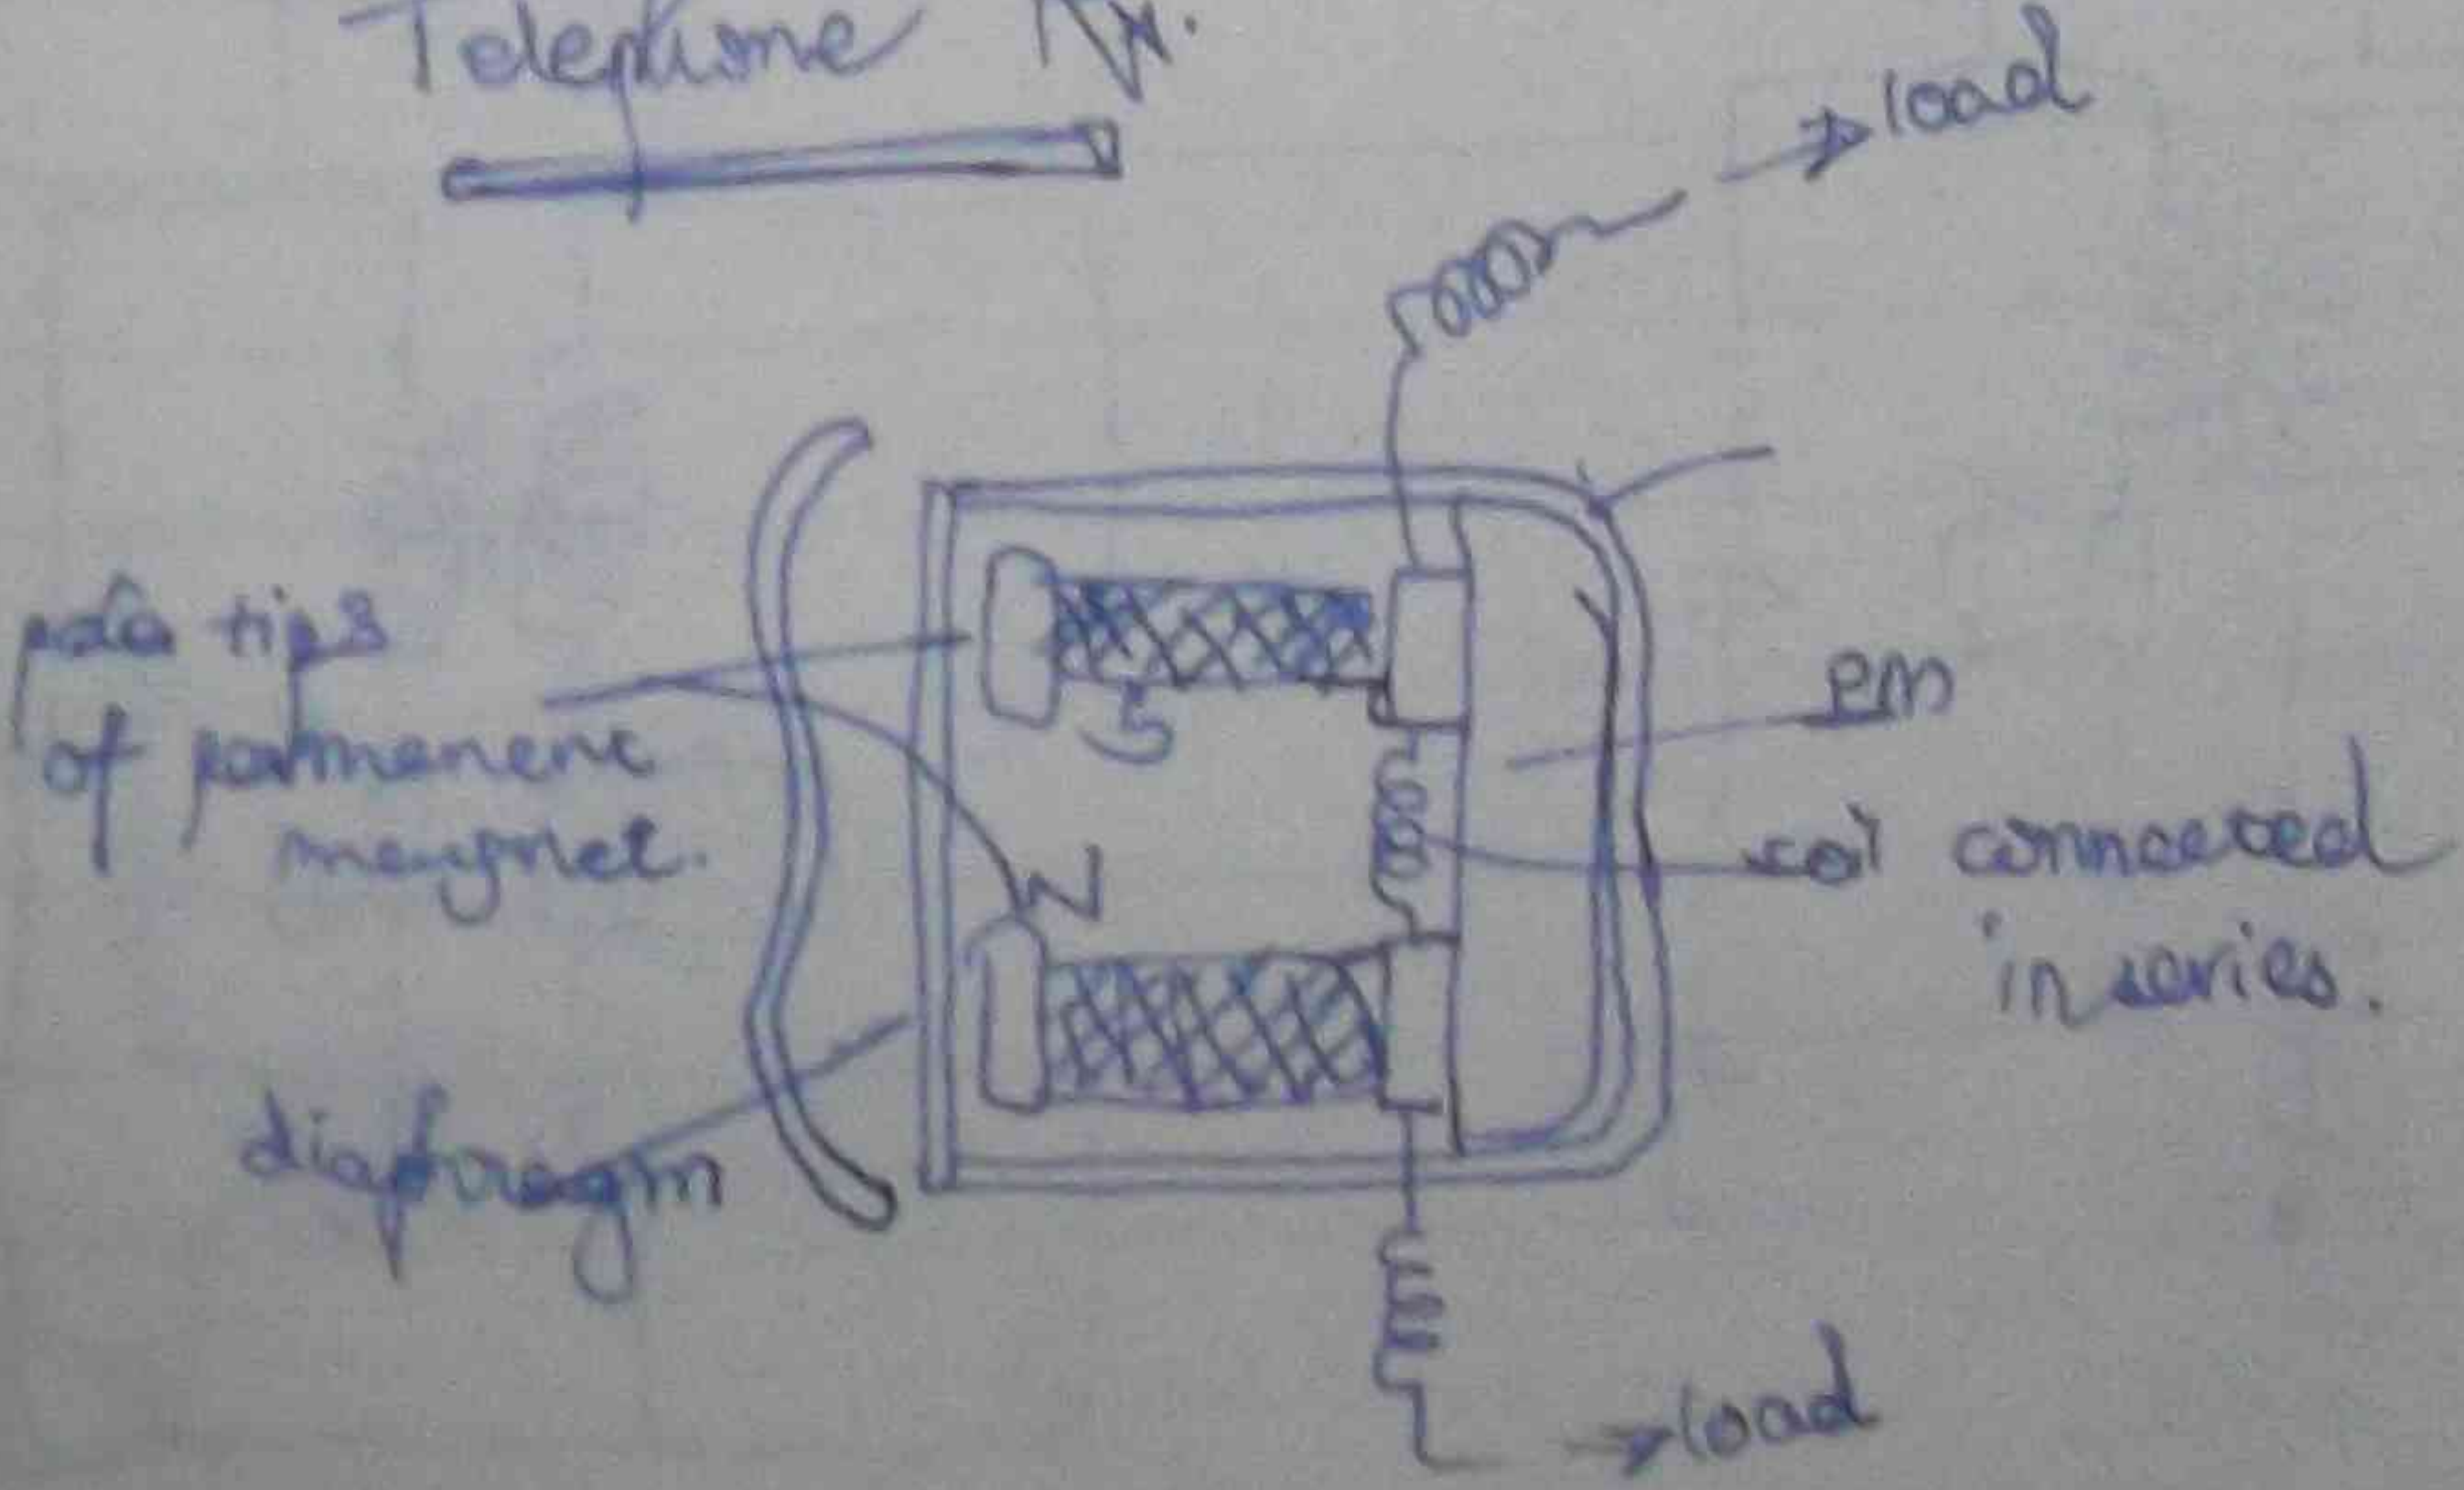 Telephone Rx.
load
pole tips
of permanent
magnet.
S
N
PM
coil connected
in series.
diaphragm
load